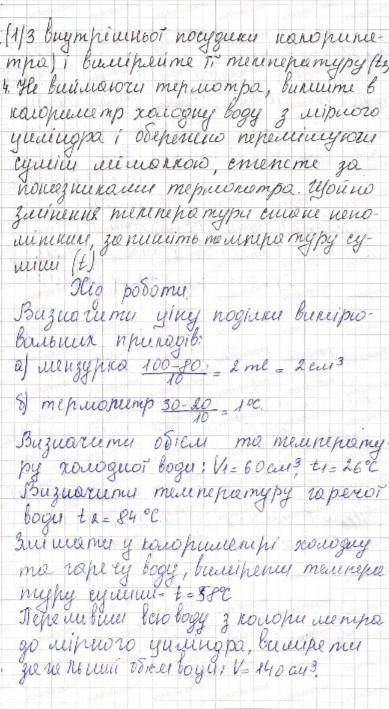 (1/3 внутрішньої посудини калориме-
тра) і виміряйте її температуру (t2)
4. Не виймаючи термотра, вилийте в
калориметр холодну воду з мірного
циліндра і обережно перемішуючи
суміш мішалкою, стежте за
показниками термометра. Щойно
змінення температури стане непо-
мітним, запишіть температуру су-
міші (t)
Хід роботи.
Визначити ціну поділки вимірю-
вальних приладів:
а) мензурка 100-80/10 = 2 ml = 2 см³
б) термометр 30-20/10 = 1°C.
Визначити обієм та температу-
ру холодної води: V1 = 60 см³, t1 = 26°C
Визначити температуру гарячої
води t2 = 84°C
Змішати у калориметрі холодну
та гарячу воду, виміряти темпера
туру суміши - t = 58°C
Переливши всю воду з калориметра
до мірного циліндра, виміряти
загальний обієм води: V = 140 см³.